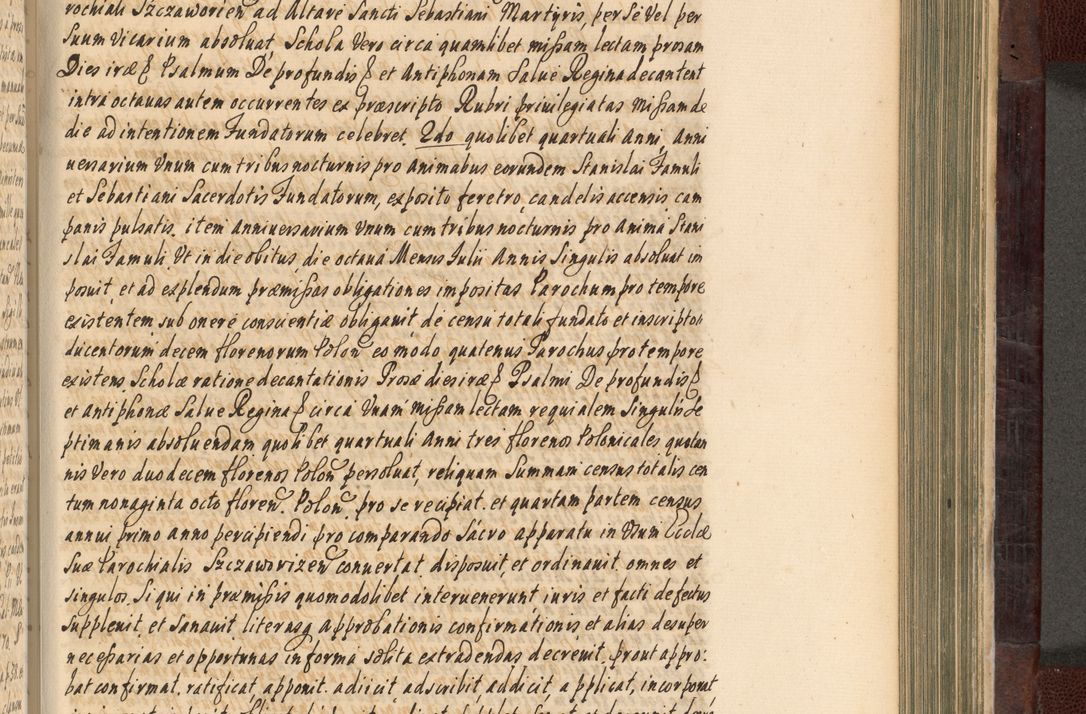 rochiali Szczaworicen̄ ad Altare Sancti Sebastiani Martyris, per Se Vel per
Suum Vicarium absoluat, Schola Vero circa quamlibet missam lectam prosam
Dies iræ & Psalmum De profundis & et Antiphonam Salue Regina decantent
intra octauas autem occurrentes ex præscripto Rubri priuilegiatas Missam de
die ad intentionem Fundatorum celebret. 2do quolibet quartuali Anni, Anni
uersarium Vnum cum tribus nocturnis pro Animabus eorundem Stanislai Famuli
et Sebastiani Sacerdotis Fundatorum, exposito feretro, candelis accensis cam
panis pulsatis, item Anniuersarium Vnum cum tribus nocturnis pro Anima Stani
slai Famuli, Vt in die obitus, die octaua Mensis Julii Annis Singulis absoluat im
posuit, et ad explendum præmissas obligationes impositas Parochum pro tempore
existentem sub onere conscientiæ obligauit, de censu totali fundato et inscripto
ducentorum decem florenorum Polon̄ eo modo quatenus Parochus pro tempore
existens, Scholæ ratione decantationis Prosæ dies iræ & Psalmi De profundis &
et Antiphonæ Salue Regina & circa Vnam Missam lectam requialem Singulis Se
ptimanis absoluendam quolibet quartuali Anni tres florenos Polonicales quotan
nis Vero duodecem florenos Polon̄ persoluat, reliquam Summam census totalis cen
tum nonaginta octo floren̄. Polon̄. pro se recipiat. et quartam partem census
annui primo anno percipiendi pro comparando Sacro apparatu in Vsum Ecclæ
Suæ Parochialis Szczaworizen̄ conuertat. disposuit, et ordinauit. omnes et
singulos, Si qui in præmissis quomodolibet interuenerunt iuris et facti defectus
suppleuit, et Sanauit, literasq approbationis confirmationis et alias desuper
necessarias et opportunas in forma solita extradendas decreuit, prout appro.
bat confirmat. ratificat, apponit. adiicit adscribit addicit applicat, incorporat